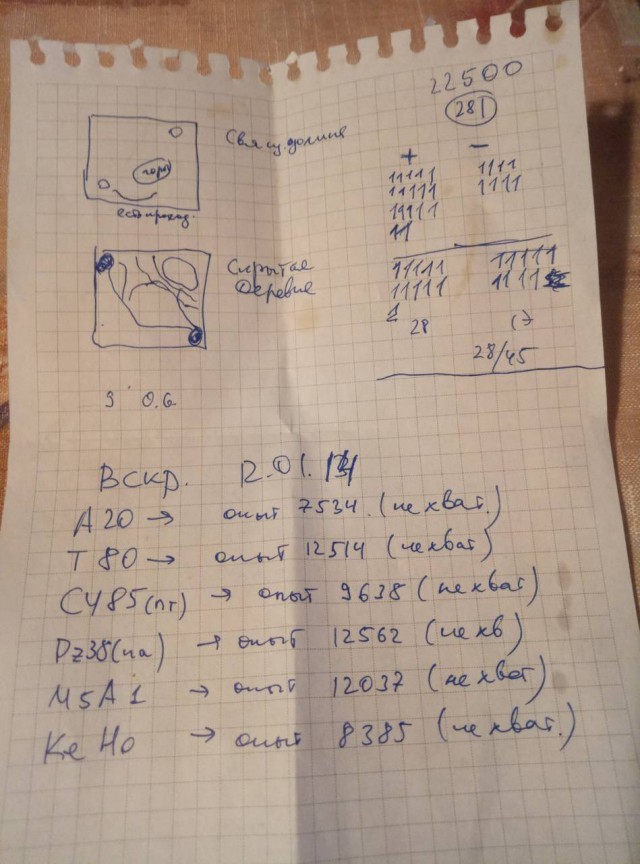 22500
281
Свящ. долина
гора
есть проход.
Скрытая
деревня
+ −
11111 1111
11111 1111
11111
11
11111 11111
11111 1111
1
28 17
28/45
3 О.б.
Вскр. 12.01.14
А20 → опыт 7534 (не хват.)
Т80 → опыт 12514 (не хват)
СУ85(пт) → опыт 9638 (не хват)
Pz38(na) → опыт 12562 (не хв)
M5A1 → опыт 12037 (не хват)
Ke Ho → опыт 8385 (не хват.)